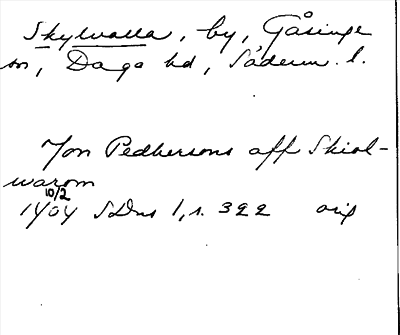 Skylvalla, by, Gåsinge
sn, Daga hd, Söderm. l.
Jon Pedhersons aff Skiol-
warom
10/2
1404 SDns 1, s. 322 orig